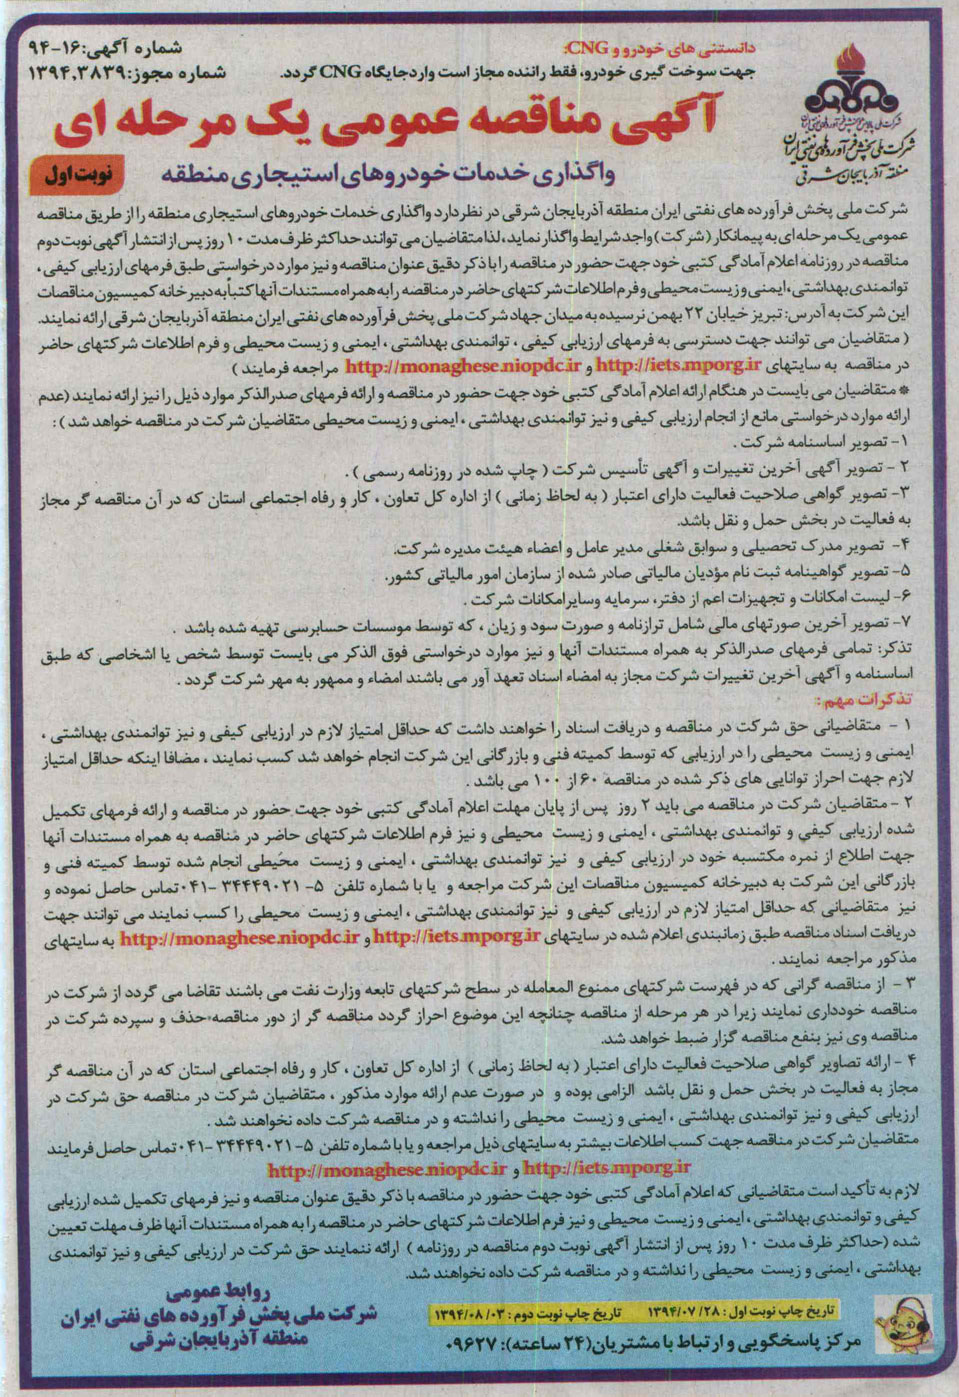 شماره آگهی: ۱۶-۹۴
شماره مجوز: ۱۳۹۴.۳۸۳۹
دانستنی های خودرو و CNG:
جهت سوخت گیری خودرو، فقط راننده مجاز است وارد جایگاه CNG گردد.
شرکت ملی پخش فرآورده های نفتی ایران
منطقه آذربایجان شرقی
آگهی مناقصه عمومی یک مرحله ای
واگذاری خدمات خودروهای استیجاری منطقه
نوبت اول
شرکت ملی پخش فرآورده های نفتی ایران منطقه آذربایجان شرقی در نظر دارد واگذاری خدمات خودروهای استیجاری منطقه را از طریق مناقصه
عمومی یک مرحله ای به پیمانکار (شرکت) واجد شرایط واگذار نماید، لذا متقاضیان می توانند حداکثر ظرف مدت ۱۰ روز پس از انتشار آگهی نوبت دوم
مناقصه در روزنامه اعلام آمادگی کتبی خود جهت حضور در مناقصه را با ذکر دقیق عنوان مناقصه و نیز موارد درخواستی طبق فرمهای ارزیابی کیفی،
توانمندی بهداشتی، ایمنی و زیست محیطی و فرم اطلاعات شرکتهای حاضر در مناقصه را به همراه مستندات آنها کتباً به دبیرخانه کمیسیون مناقصات
این شرکت به آدرس: تبریز خیابان ۲۲ بهمن نرسیده به میدان جهاد شرکت ملی پخش فرآورده های نفتی ایران منطقه آذربایجان شرقی ارائه نمایند.
( متقاضیان می توانند جهت دسترسی به فرمهای ارزیابی کیفی ، توانمندی بهداشتی ، ایمنی و زیست محیطی و فرم اطلاعات شرکتهای حاضر
در مناقصه به سایتهای http://iets.mporg.ir و http://monaghese.niopdc.ir مراجعه فرمایند )
* متقاضیان می بایست در هنگام ارائه اعلام آمادگی کتبی خود جهت حضور در مناقصه و ارائه فرمهای صدرالذکر موارد ذیل را نیز ارائه نمایند (عدم
ارائه موارد درخواستی مانع از انجام ارزیابی کیفی و نیز توانمندی بهداشتی ، ایمنی و زیست محیطی متقاضیان شرکت در مناقصه خواهد شد ) :
۱- تصویر اساسنامه شرکت .
۲ - تصویر آگهی آخرین تغییرات و آگهی تأسیس شرکت ( چاپ شده در روزنامه رسمی ) .
۳- تصویر گواهی صلاحیت فعالیت دارای اعتبار ( به لحاظ زمانی ) از اداره کل تعاون ، کار و رفاه اجتماعی استان که در آن مناقصه گر مجاز
به فعالیت در بخش حمل و نقل باشد.
۴- تصویر مدرک تحصیلی و سوابق شغلی مدیر عامل و اعضاء هیئت مدیره شرکت.
۵- تصویر گواهینامه ثبت نام مؤدیان مالیاتی صادر شده از سازمان امور مالیاتی کشور.
۶- لیست امکانات و تجهیزات اعم از دفتر، سرمایه وسایر امکانات شرکت .
۷- تصویر آخرین صورتهای مالی شامل ترازنامه و صورت سود و زیان ، که توسط موسسات حسابرسی تهیه شده باشد .
تذکر: تمامی فرمهای صدرالذکر به همراه مستندات آنها و نیز موارد درخواستی فوق الذکر می بایست توسط شخص یا اشخاصی که طبق
اساسنامه و آگهی آخرین تغییرات شرکت مجاز به امضاء اسناد تعهد آور می باشند امضاء و ممهور به مهر شرکت گردد .
تذکرات مهم :
۱ - متقاضیانی حق شرکت در مناقصه و دریافت اسناد را خواهند داشت که حداقل امتیاز لازم در ارزیابی کیفی و نیز توانمندی بهداشتی ،
ایمنی و زیست محیطی را در ارزیابی که توسط کمیته فنی و بازرگانی این شرکت انجام خواهد شد کسب نمایند ، مضافا اینکه حداقل امتیاز
لازم جهت احراز توانایی های ذکر شده در مناقصه ۶۰ از ۱۰۰ می باشد .
۲ - متقاضیان شرکت در مناقصه می باید ۲ روز پس از پایان مهلت اعلام آمادگی کتبی خود جهت حضور در مناقصه و ارائه فرمهای تکمیل
شده ارزیابی کیفی و توانمندی بهداشتی ، ایمنی و زیست محیطی و نیز فرم اطلاعات شرکتهای حاضر در مناقصه به همراه مستندات آنها
جهت اطلاع از نمره مکتسبه خود در ارزیابی کیفی و نیز توانمندی بهداشتی ، ایمنی و زیست محیطی انجام شده توسط کمیته فنی و
بازرگانی این شرکت به دبیرخانه کمیسیون مناقصات این شرکت مراجعه و یا با شماره تلفن ۵- ۳۴۴۴۹۰۲۱ -۰۴۱ تماس حاصل نموده و
نیز متقاضیانی که حداقل امتیاز لازم در ارزیابی کیفی و نیز توانمندی بهداشتی ، ایمنی و زیست محیطی را کسب نمایند می توانند جهت
دریافت اسناد مناقصه طبق زمانبندی اعلام شده در سایتهای http://iets.mporg.ir و http://monaghese.niopdc.ir به سایتهای
مذکور مراجعه نمایند .
۳ - از مناقصه گرانی که در فهرست شرکتهای ممنوع المعامله در سطح شرکتهای تابعه وزارت نفت می باشند تقاضا می گردد از شرکت در
مناقصه خودداری نمایند زیرا در هر مرحله از مناقصه چنانچه این موضوع احراز گردد مناقصه گر از دور مناقصه حذف و سپرده شرکت در
مناقصه وی نیز بنفع مناقصه گزار ضبط خواهد شد.
۴ - ارائه تصاویر گواهی صلاحیت فعالیت دارای اعتبار ( به لحاظ زمانی ) از اداره کل تعاون ، کار و رفاه اجتماعی استان که در آن مناقصه گر
مجاز به فعالیت در بخش حمل و نقل باشد الزامی بوده و در صورت عدم ارائه موارد مذکور ، متقاضیان شرکت در مناقصه حق شرکت در
ارزیابی کیفی و نیز توانمندی بهداشتی ، ایمنی و زیست محیطی را نداشته و در مناقصه شرکت داده نخواهند شد .
متقاضیان شرکت در مناقصه جهت کسب اطلاعات بیشتر به سایتهای ذیل مراجعه و یا با شماره تلفن ۵- ۳۴۴۴۹۰۲۱ -۰۴۱ تماس حاصل فرمایند
http://iets.mporg.ir و http://monaghese.niopdc.ir
لازم به تأکید است متقاضیانی که اعلام آمادگی کتبی خود جهت حضور در مناقصه با ذکر دقیق عنوان مناقصه و نیز فرمهای تکمیل شده ارزیابی
کیفی و توانمندی بهداشتی ، ایمنی و زیست محیطی و نیز فرم اطلاعات شرکتهای حاضر در مناقصه را به همراه مستندات آنها ظرف مهلت تعیین
شده (حداکثر ظرف مدت ۱۰ روز پس از انتشار آگهی نوبت دوم مناقصه در روزنامه ) ارائه ننمایند حق شرکت در ارزیابی کیفی و نیز توانمندی
بهداشتی ، ایمنی و زیست محیطی را نداشته و در مناقصه شرکت داده نخواهند شد.
تاریخ چاپ نوبت اول : ۱۳۹۴/۰۷/۲۸ تاریخ چاپ نوبت دوم : ۱۳۹۴/۰۸/۰۳
مرکز پاسخگویی و ارتباط با مشتریان (۲۴ ساعته): ۰۹۶۲۷
روابط عمومی
شرکت ملی پخش فرآورده های نفتی ایران
منطقه آذربایجان شرقی